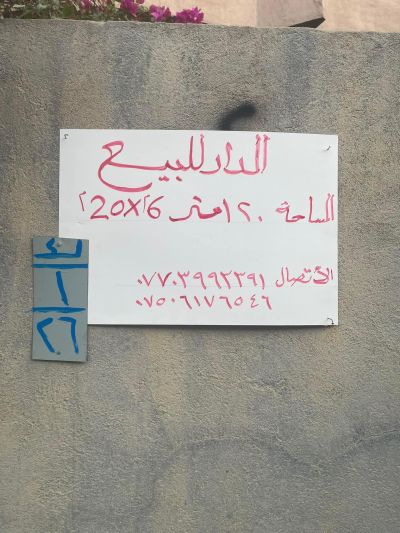 الدار للبيع
المساحة ١٢٠ متر 6م×20م
الأتصال ٠٧٧٠٣٩٩٢٢٩١
٠٧٥٠٦١٧٦٥٤٦